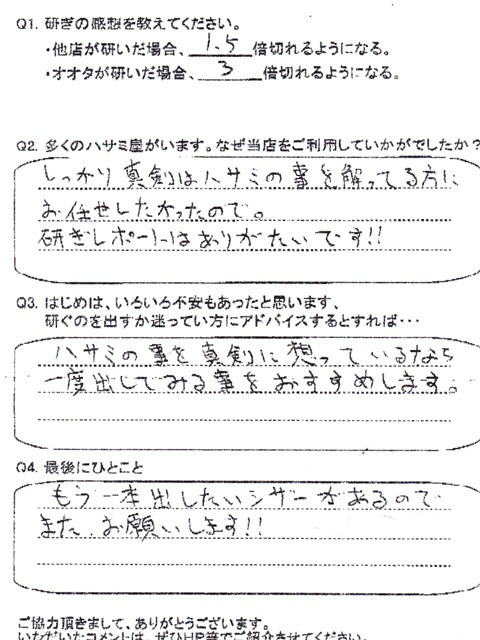 Q1. 研ぎの感想を教えてください。
・他店が研いだ場合、 1.5 倍切れるようになる。
・オオタが研いだ場合、 3 倍切れるようになる。
Q2. 多くのハサミ屋がいます。なぜ当店をご利用していかがでしたか?
しっかり真剣にハサミの事を解ってる方に
お任せしたかったので。
研ぎレポートはありがたいです!!
Q3. はじめは、いろいろ不安もあったと思います、
研ぐのを出すか迷ってい方にアドバイスするとすれば・・・
ハサミの事を真剣に想っているなら
一度出してみる事をおすすめします。
Q4. 最後にひとこと
もう一本出したいシザーがあるので
また、お願いします!!
ご協力頂きまして、ありがとうございます。
いただいたコメントは、ぜひHP等でご紹介させてください。